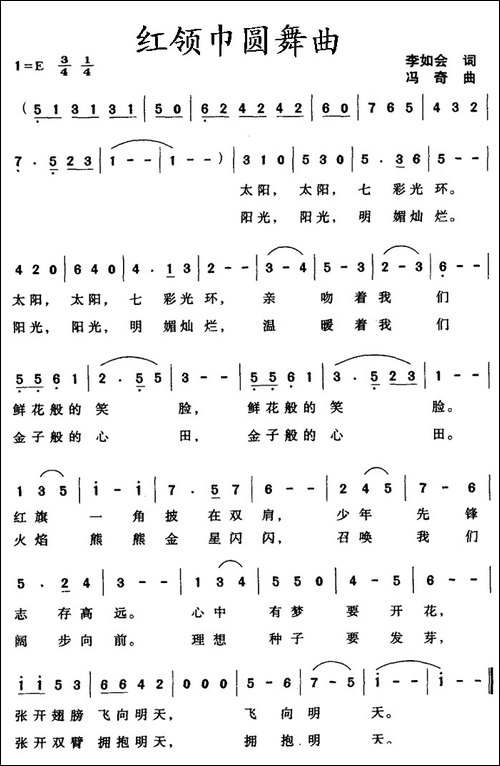 红领巾圆舞曲
1=E 3/4 1/4
李如会 词
冯奇 曲
(5 1 3 1 3 1 | 5 0 | 6 2 4 2 4 2 | 6 0 | 7 6 5 | 4 3 2 |
7 · 5 2 3 | 1 - - | 1 - - ) | 3 1 0 | 5 3 0 | 5 · 3 6 | 5 - - |
太阳, 太阳, 七 彩光 环。
阳光, 阳光, 明 媚灿 烂。
4 2 0 | 6 4 0 | 4 · 1 3 | 2 - - | 3 - 4 | 5 - 3 | 2 - 3 | 6 - - |
太阳, 太阳, 七 彩光 环, 亲 吻着我 们
阳光, 阳光, 明 媚灿 烂, 温 暖着我 们
5 5 6 1 | 2 · 5 5 | 3 - - | 5 5 6 1 | 3 · 5 2 3 | 1 - - |
鲜花般的 笑 脸, 鲜花般的 笑 脸。
金子般的 心 田, 金子般的 心 田。
1 3 5 | i - i | 7 · 5 | 6 - 7 | 6 - - | 2 4 5 | 7 - 6 |
红旗 一 角披 在双 肩, 少年 先 锋
火焰 熊 熊金 星闪 闪, 召唤 我 们
5 · 2 4 | 3 - - | 1 3 4 | 5 - 5 | 1 - 2 | 4 - 5 | 6 - - |
志 存高 远。 心中 有 梦 要 开 花,
阔 步向 前。 理想 种 子 要 发 芽,
i i 5 3 | 6 6 4 2 | 0 0 0 | 5 - 6 | 7 - 5 | i - - | i - - ‖
张开翅膀 飞向明天, 飞 向 明 天。
张开双臂 拥抱明天, 拥 抱 明 天。